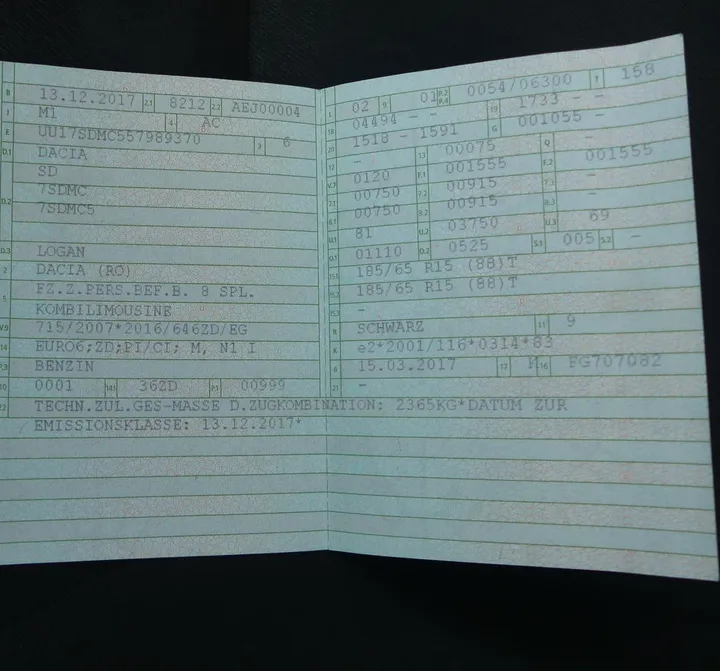 B 13.12.2017 2.1 8212 2.2 AEJ00004
J M1 4 AC
E UU17SDMC557989370 3 6
D.1 DACIA
SD
D.2 7SDMC
7SDMC5
D.3 LOGAN
2 DACIA (RO)
5 FZ.Z.PERS.BEF.B. 8 SPL.
KOMBILIMOUSINE
V.9 715/2007*2016/646ZD/EG
14 EURO6;ZD;PI/CI; M, N1 I
P.3 BENZIN
10 0001 14.1 36ZD P.1 00999
22 TECHN.ZUL.GES-MASSE D.ZUGKOMBINATION: 2365KG*DATUM ZUR
EMISSIONSKLASSE: 13.12.2017*
L 02 9 01 P.2 P.4 0054/06300 T 158
18 04494 - - 19 1733 - -
20 1518 - 1591 G 001055 -
12 - 13 00075 Q -
V.7 0120 F.1 001555 F.2 001555
7.1 00750 7.2 00915 7.3 -
8.1 00750 8.2 00915 8.3 -
U.1 81 U.2 03750 U.3 69
O.1 01110 O.2 0525 S.1 005 S.2 -
15.1 185/65 R15 (88)T
15.2 185/65 R15 (88)T
15.3 -
R SCHWARZ 11 9
K e2*2001/116*0314*83
6 15.03.2017 17 16 FG707082
21 -